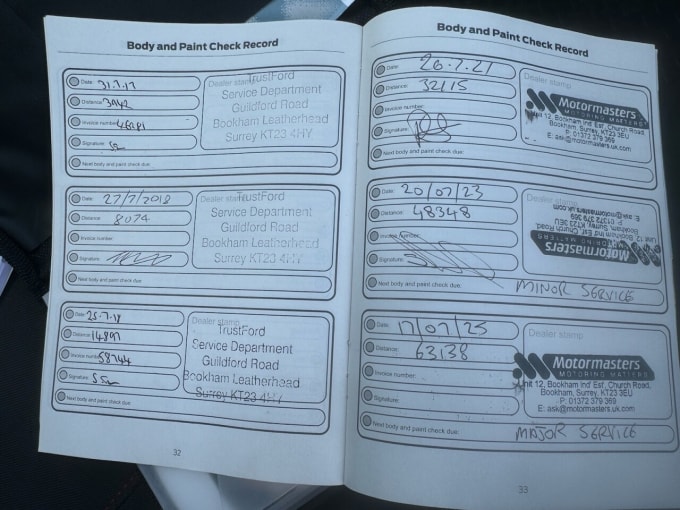 Body and Paint Check Record
Date: 31.7.17
Distance: 3942
Invoice number:
Signature:
Next body and paint check due:
Dealer stamp
TrustFord
Service Department
Guildford Road
Bookham Leatherhead
Surrey KT23 4HY
Date: 27/7/2018
Distance: 8074
Invoice number:
Signature:
Next body and paint check due:
Dealer stamp
TrustFord
Service Department
Guildford Road
Bookham Leatherhead
Surrey KT23 4HY
Date: 25.7.19
Distance: 14897
Invoice number: 58744
Signature:
Next body and paint check due:
Dealer stamp
TrustFord
Service Department
Guildford Road
Bookham Leatherhead
Surrey KT23 4HY
32
Body and Paint Check Record
Date: 26.7.21
Distance: 32115
Invoice number:
Signature:
Next body and paint check due:
Dealer stamp
Motormasters
MOTORING MATTERS
Unit 12, Bookham Ind Est, Church Road,
Bookham, Surrey, KT23 3EU
P: 01372 379 369
E: ask@motormasters.uk.com
Date: 20/07/23
Distance: 48348
Invoice number:
Signature:
Next body and paint check due: MINOR SERVICE
Dealer stamp
Motormasters
MOTORING MATTERS
Unit 12, Bookham Ind Est, Church Road,
Bookham, Surrey, KT23 3EU
P: 01372 379 369
E: ask@motormasters.uk.com
Date: 17/07/25
Distance: 63138
Invoice number:
Signature:
Next body and paint check due: MAJOR SERVICE
Dealer stamp
Motormasters
MOTORING MATTERS
Unit 12, Bookham Ind Est, Church Road,
Bookham, Surrey, KT23 3EU
P: 01372 379 369
E: ask@motormasters.uk.com
33